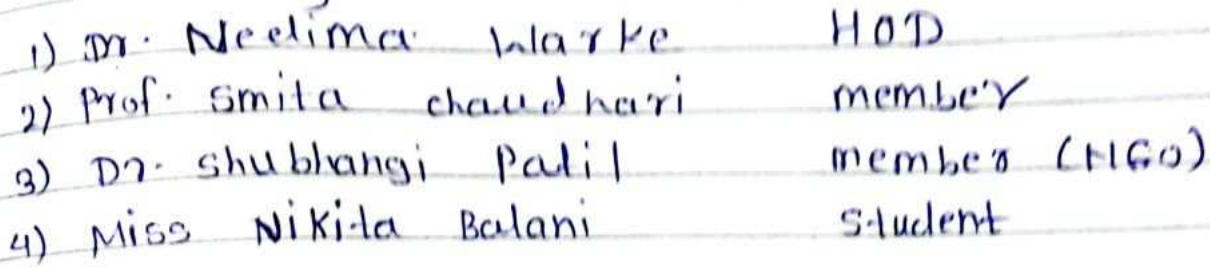 1) Dr. Neelima Warke HOD
2) Prof. Smita chaudhari member
3) Dr. Shubhangi Patil member (NGO)
4) Miss Nikita Balani Student